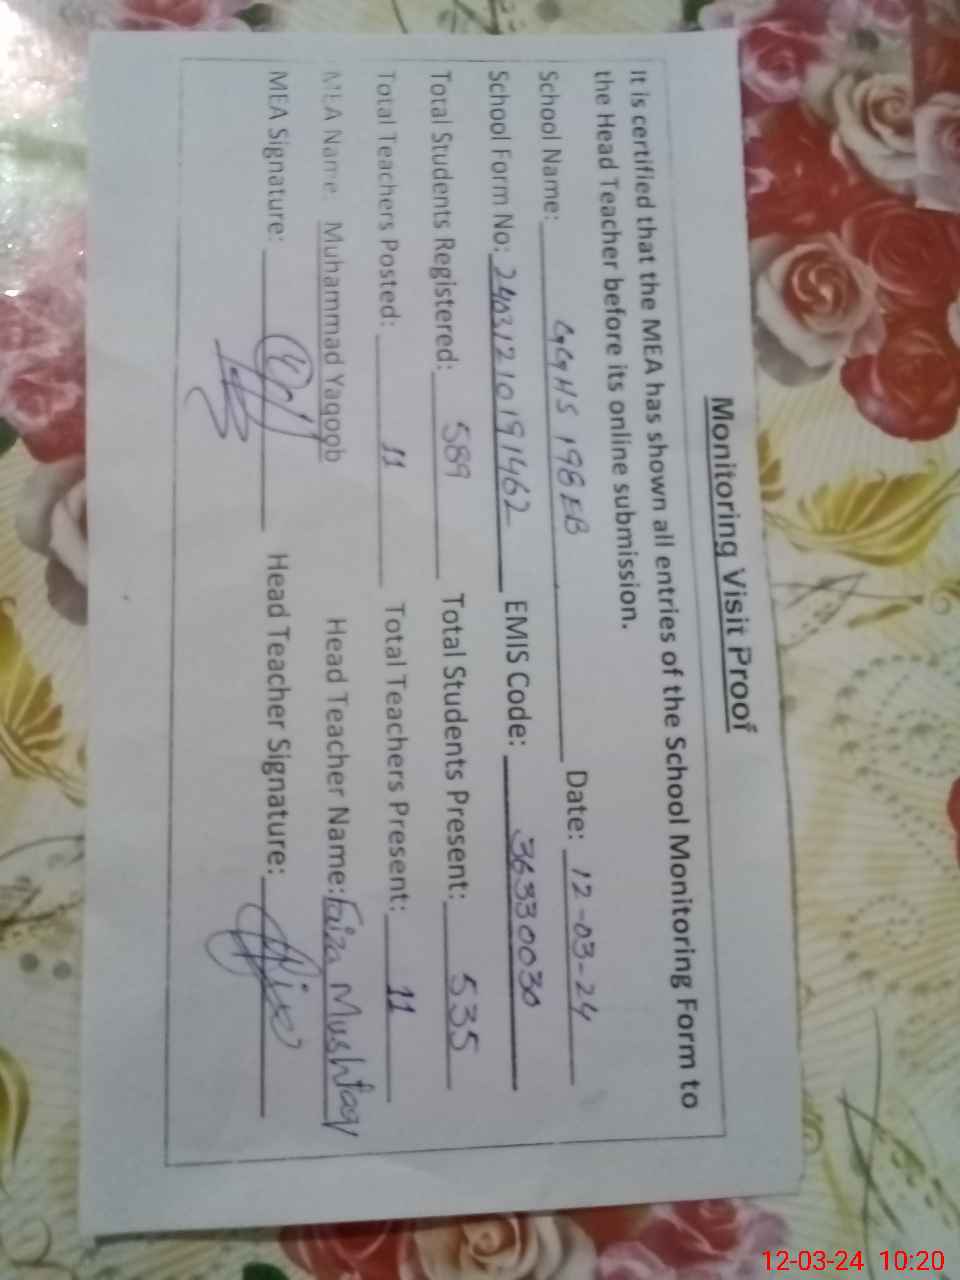 Monitoring Visit Proof
It is certified that the MEA has shown all entries of the School Monitoring Form to
the Head Teacher before its online submission.
School Name: GGHS 198 EB Date: 12-03-24
School Form No: 24031210191462 EMIS Code: 36330030
Total Students Registered: 589 Total Students Present: 535
Total Teachers Posted: 11 Total Teachers Present: 11
MEA Name: Muhammad Yaqoob Head Teacher Name: Faiza Mushtaq
MEA Signature: Head Teacher Signature:
12-03-24 10:20